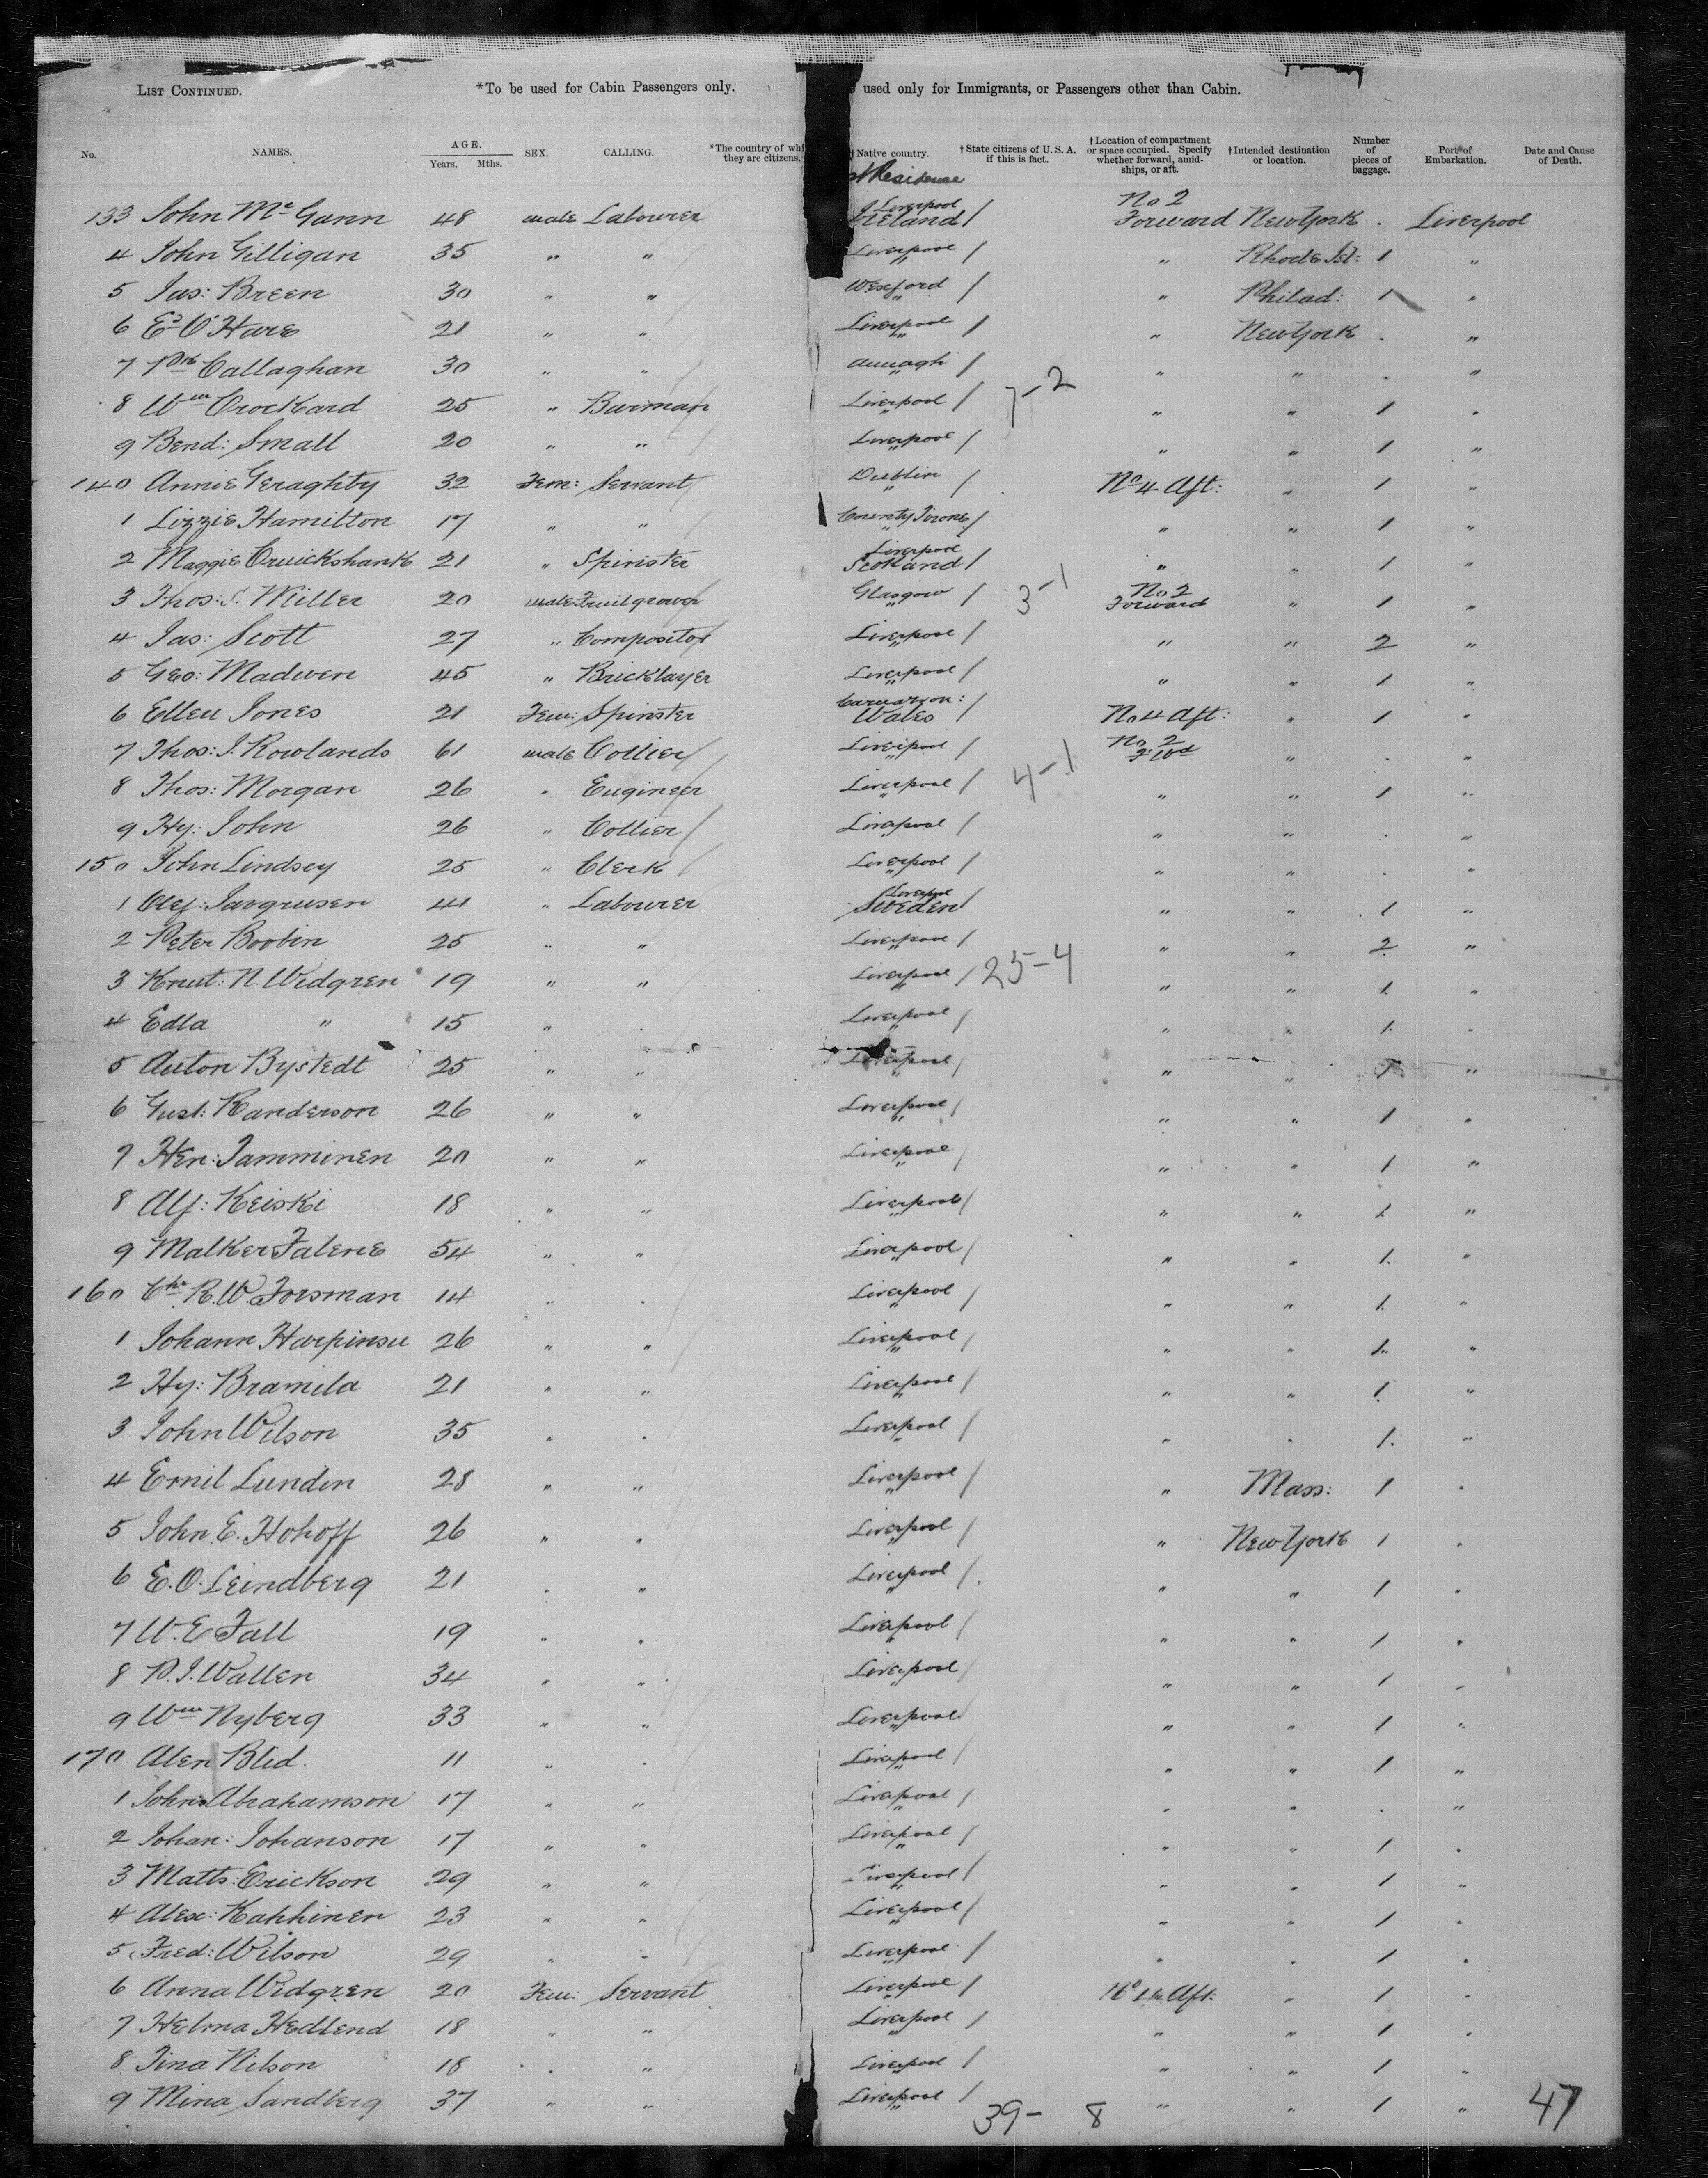 LIST CONTINUED. *To be used for Cabin Passengers only. used only for Immigrants, or Passengers other than Cabin.
No. NAMES. AGE. Years. Mths. SEX. CALLING. *The country of whi they are citizens. †Native country. †State citizens of U. S. A. if this is fact. †Location of compartment or space occupied. Specify whether forward, amid-ships, or aft. †Intended destination or location. Number of pieces of baggage. Port of Embarkation. Date and Cause of Death.
Residence
133 John Mc Gann 48 male Labourer Liverpool Ireland / No 2 Forward New York . Liverpool
4 John Gilligan 35 " " Liverpool " / " Rhode Isl: 1 "
5 Jas: Breen 30 " " Wexford " / " Philad: 1 "
6 Ed O'Hare 21 " " Liverpool " / " New York . "
7 Pk Callaghan 30 " " Armagh " / " " . "
8 Wm Crockard 25 " Barman Liverpool " / 7-2 " " 1 "
9 Bend: Small 20 " " Liverpool " / " " 1 "
140 Annie Geraghty 32 Fem: Servant Dublin " / No 4 Aft: " 1 "
1 Lizzie Hamilton 17 " " County Tirone " / " " 1 "
2 Maggie Cruickshank 21 " Spinster Liverpool Scotland / " " 1 "
3 Thos: S. Miller 20 male Fruitgrower Glasgow " / 3-1 No 2 Forward " 1 "
4 Jas: Scott 27 " Compositor Liverpool " / " " 2 "
5 Geo: Madwen 45 " Bricklayer Liverpool " / " " 1 "
6 Ellen Jones 21 Fem: Spinster Carnarvon: Wales / No 4 Aft: " 1 "
7 Thos: J. Rowlands 61 male Collier Liverpool " / No 2 Fwd " . "
8 Thos: Morgan 26 " Engineer Liverpool " / 4-1 " " 1 "
9 Hy: John 26 " Collier Liverpool " / " " . "
150 John Lindsey 25 " Clerk Liverpool " / " " . "
1 Olef: 41 " Labourer Liverpool Sweden / " " 1 "
2 Peter Boobin 25 " " Liverpool " / " " 2 "
3 Knut: N. Widgren 19 " " Liverpool " / 25-4 " " 1 "
4 Edla " 15 " " Liverpool " / " " 1 "
5 Anton Bystedt 25 " " Liverpool " / " " 1 "
6 Gust: Randerson 26 " " Liverpool " / " " 1 "
7 Hen: Tamminen 20 " " Liverpool " / " " 1 "
8 Alf: Keiski 18 " " Liverpool " / " " 1 "
9 Malker Falene 54 " " Liverpool " / " " 1 "
160 Chs R. W. Forsman 14 " " Liverpool " / " " 1 "
1 Johann Harpinsu 26 " " Liverpool " / " " 1 "
2 Hy: Bramila 21 " " Liverpool " / " " 1 "
3 John Wilson 35 " " Liverpool " / " " 1 "
4 Emil Lundin 28 " " Liverpool " / " Mass: 1 "
5 John E. Hohoff 26 " " Liverpool " / " New York 1 "
6 E. O. Leindberg 21 " " Liverpool " / " " 1 "
7 W. E Fall 19 " " Liverpool " / " " 1 "
8 P. J. Wallen 34 " " Liverpool " / " " 1 "
9 Wm Nyberg 33 " " Liverpool " " " 1 "
170 Alen Blid. 11 " " Liverpool " / " " 1 "
1 John Abrahamson 17 " " Liverpool " / " " . "
2 Johan: Johanson 17 " " Liverpool " / " " 1 "
3 Matts: Erickson 29 " " Liverpool " / " " 1 "
4 Alex: Kahhinen 23 " " Liverpool " / " " 1 "
5 Fred: Wilson 29 " " Liverpool " / " " 1 "
6 Anna Widgren 20 Fem: Servant Liverpool " / No Aft: " 1 "
7 Helma Hedlend 18 " " Liverpool " / " " 1 "
8 Tina Nilson 18 " " Liverpool " / " " 1 "
9 Mina Sandberg 37 " " Liverpool " / " " 1 "
39- 8 47